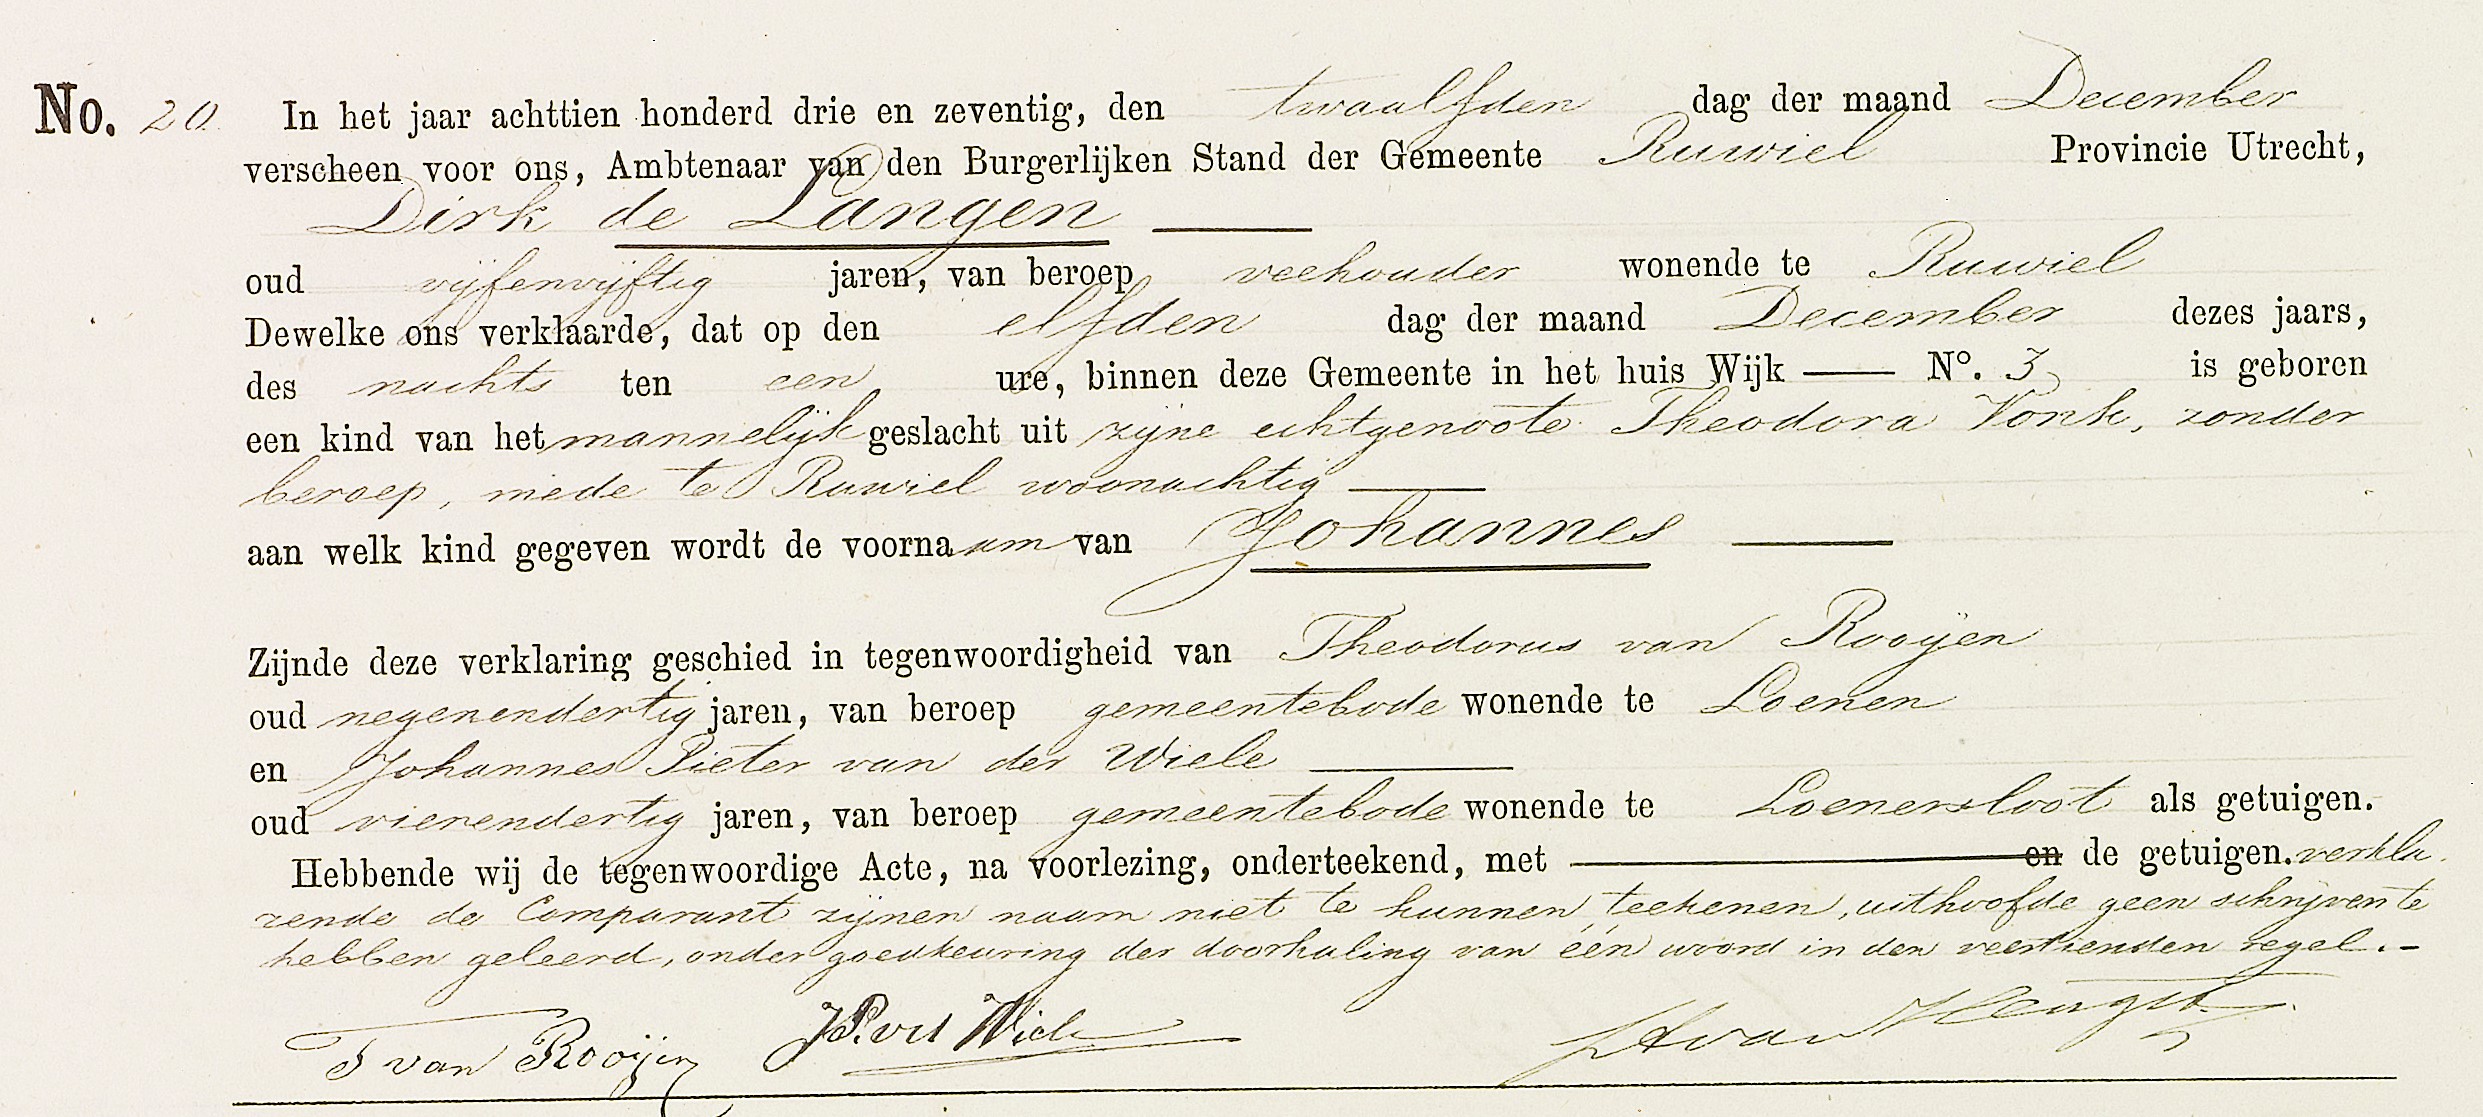 No. 20. In het jaar achttien honderd drie en zeventig, den twaalfden dag der maand December
verscheen voor ons, Ambtenaar van den Burgerlijken Stand der Gemeente Ruwiel Provincie Utrecht,
Dirk de Langen
oud vijfenvijftig jaren, van beroep veehouder wonende te Ruwiel
Dewelke ons verklaarde, dat op den elfden dag der maand December dezes jaars,
des nachts ten een ure, binnen deze Gemeente in het huis Wijk — N°. 3 is geboren
een kind van het mannelijk geslacht uit zijne echtgenoote Theodora Vonk, zonder
beroep, mede te Ruwiel woonachtig —
aan welk kind gegeven wordt de voornaam van Johannes —
Zijnde deze verklaring geschied in tegenwoordigheid van Theodorus van Rooijen
oud negenendertig jaren, van beroep gemeentebode wonende te Loenen
en Johannes Pieter van der Wiele —
oud vierendertig jaren, van beroep gemeentebode wonende te Loenersloot als getuigen.
Hebbende wij de tegenwoordige Acte, na voorlezing, onderteekend, met — en de getuigen. verkla-
rende de Comparant zijnen naam niet te kunnen teekenen, uithoofde geen schrijven te
hebben geleerd, onder goedkeuring der doorhaling van één woord in den veertienden regel. -
T van Rooijen JP. vd Wiele van Hengst